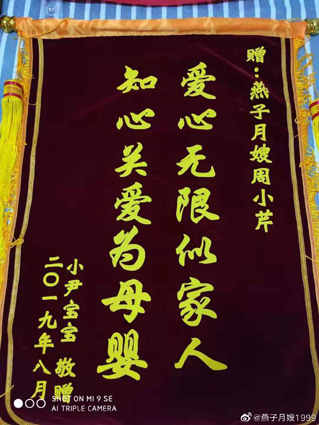 赠：燕子月嫂周小芹
爱心无限似家人
知心关爱为母婴
小尹宝宝 敬赠
二〇一九年八月
SHOT ON MI 9 SE
AI TRIPLE CAMERA
@燕子月嫂1999